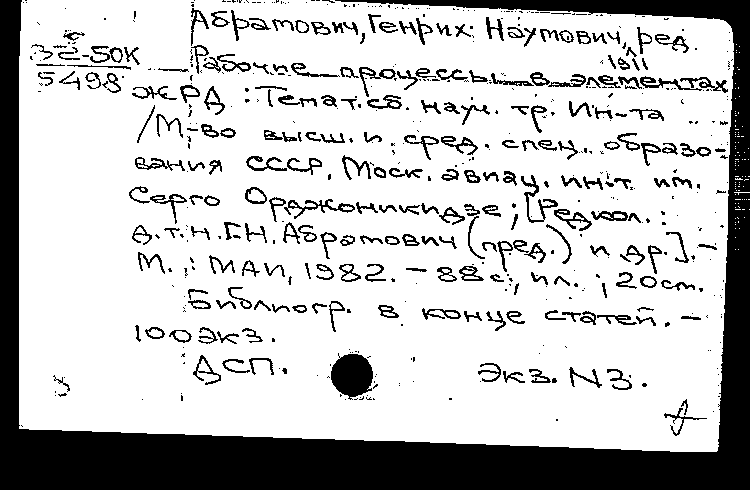 Абрамович, Генрих Наумович, ред.
1911
32-50К
5498
Рабочие процессы в элементах
ЖРД : Темат. сб. науч. тр. Ин-та
/М-во высш. и сред. спец. образо-
вания СССР, Моск. авиац. ин-т им.
Серго Орджоникидзе; [Редкол.:
д.т.н. Г.Н. Абрамович (пред.) и др.]. –
М.: МАИ, 1982. – 88 с., ил. ; 20 см.
Библиогр. в конце статей. –
100 экз.
ДСП.
Экз. N3.